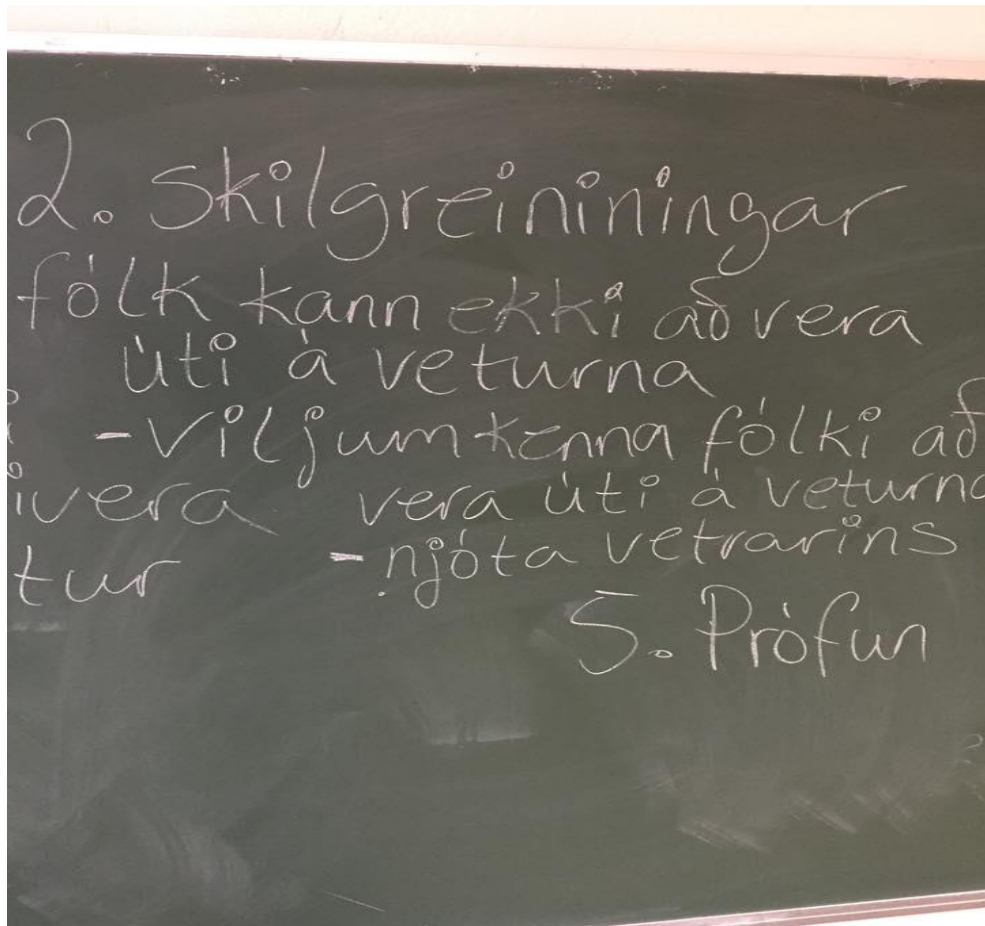 2. Skilgreininingar
fólk kann ekki að vera
úti á veturna
- Viljum kenna fólki að
ivera vera úti á veturna
tur - njóta vetrarins
5. Prófun